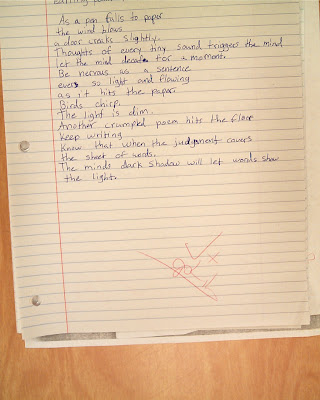 As a pen falls to paper
the wind blows
a door creaks slightly.
Thoughts of every tiny sound triggers the mind
let the mind decade for a moment.
Be nervous as a sentence
ever so light and flowing
as it hits the paper.
Birds chirp.
The light is dim.
Another crumpled poem hits the floor
keep writing
Know that when the judgment covers
the sheet of words.
The minds dark shadow will let words show
the light.